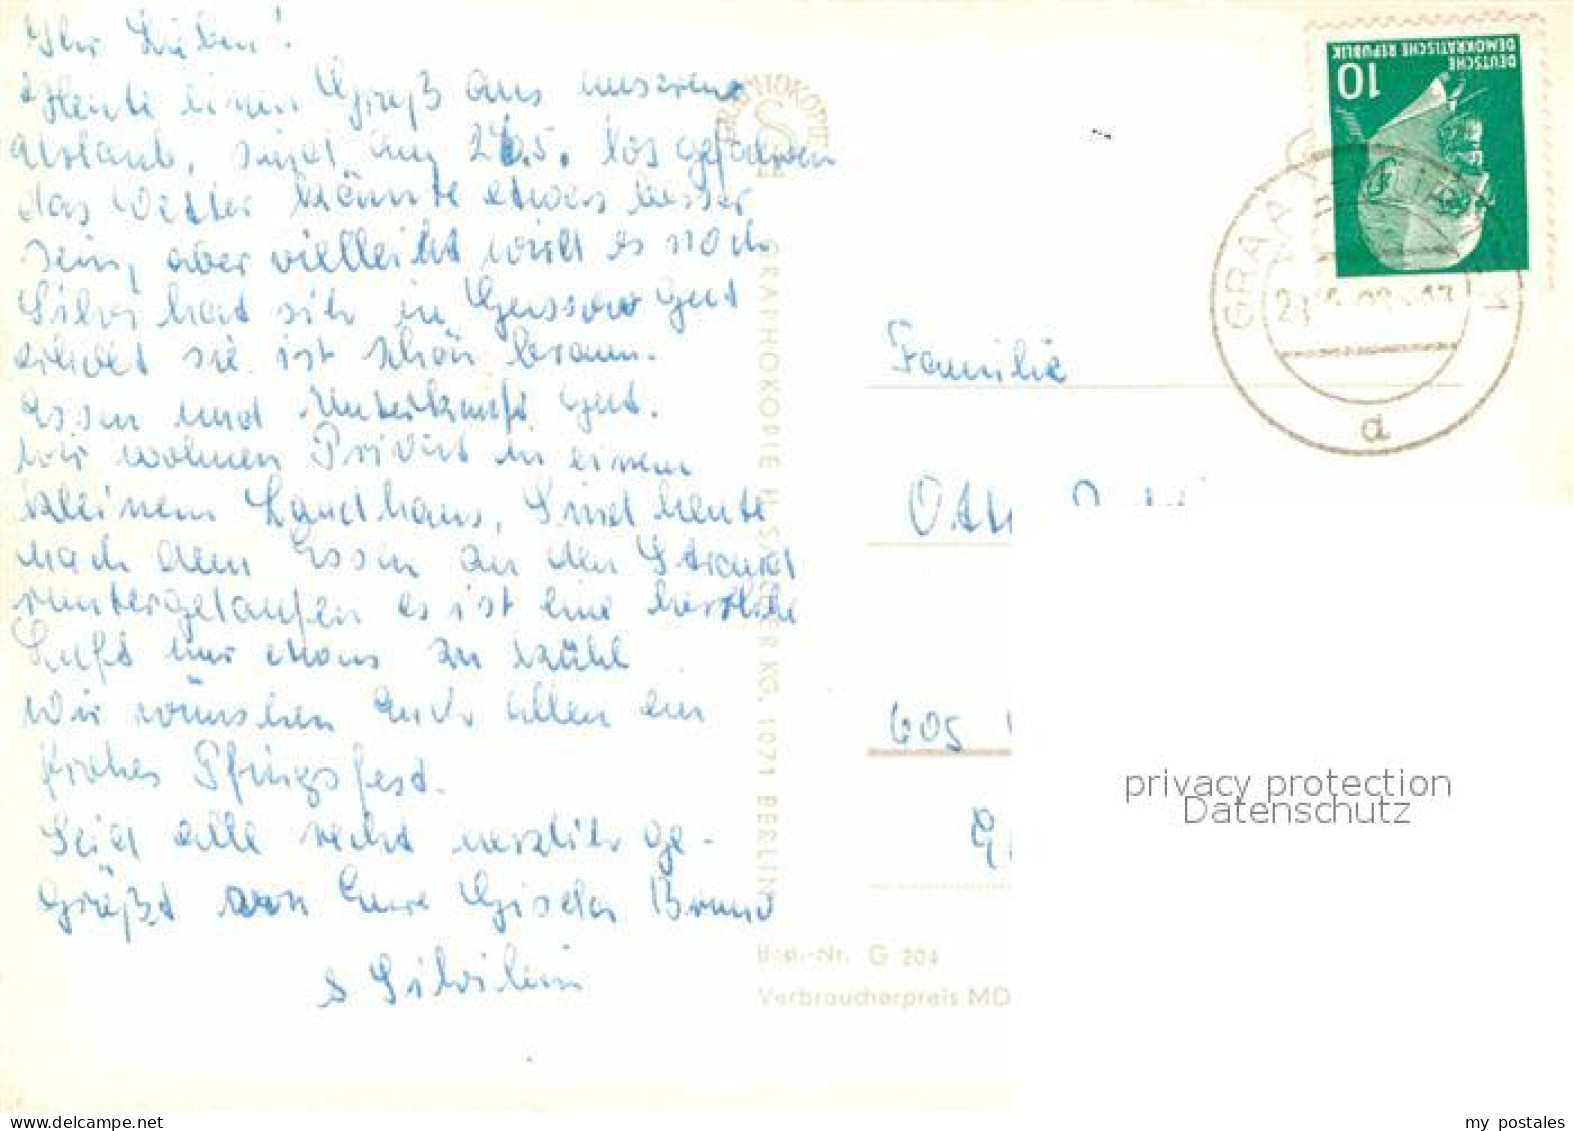 Ihr Lieben!
Heute einen Gruß aus unserem
Urlaub, sind am 26.5. los gefahren
das Wetter könnte etwas besser
sein, aber vielleicht wird es noch
Silvi hat sich in Gussow gut
erholt sie ist schön braun.
essen und Unterkunft gut.
wir wohnen Privat in einem
kleinem Landhaus, Sind heute
nach dem Essen an den Strand
runtergelaufen es ist eine herrliche
Luft nur etwas zu kühl
Wir wünschen Euch allen ein
frohes Pfingsfest.
Seid alle recht herzlich ge-
grüßt von Eure Gisela Bruno
s Silvilein
GRAPHOKOPIE
GRAPHOKOPIE H. SANDER KG. 1071 BERLIN
Best.-Nr. G 204
Verbraucherpreis MD
DEUTSCHE
DEMOKRATISCHE REPUBLIK
10
GRAAL
a
Familie
605
privacy protection
Datenschutz
my postales